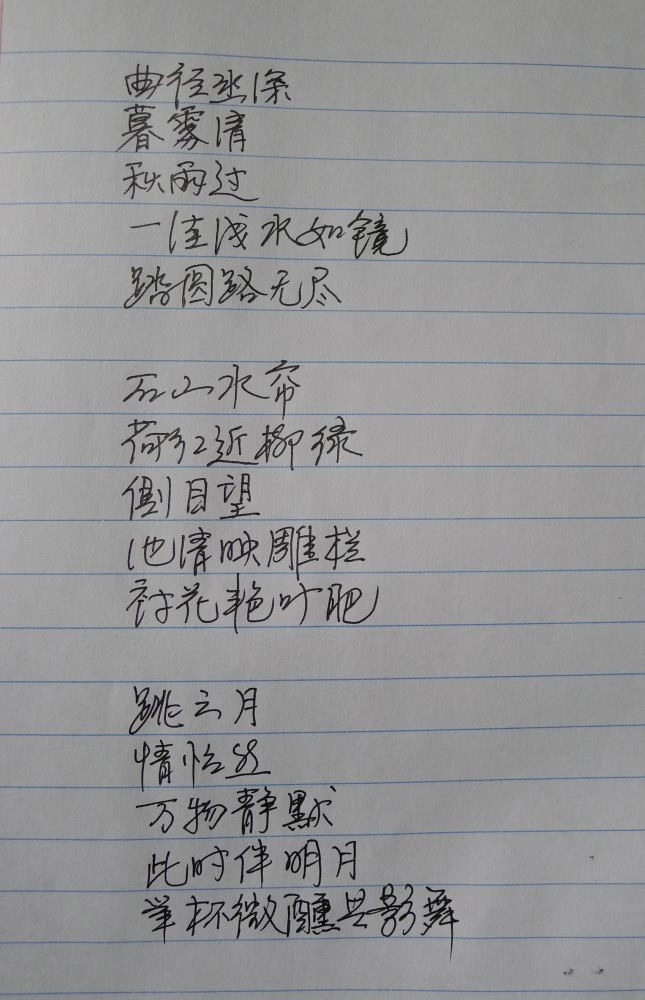 曲径幽深
暮雾清
秋雨过
一洼浅水如镜
踏圆路无尽
石山水帘
荷红近柳绿
侧目望
池清映雕栏
衬花艳叶肥
跳云月
情怡丝
万物静默
此时伴明月
举杯微醺共影舞